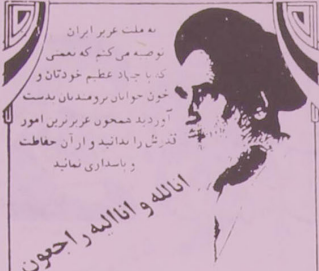 به ملت عزیز ایران
توصیه می کنم که نعمتی
که با جهاد عظیم خودتان و
خون جوانان برومندتان بدست
آوردید همچون عزیزترین امور
قدرش را بدانید و از آن حفاظت
و پاسداری نمائید
انالله و اناالیه راجعون